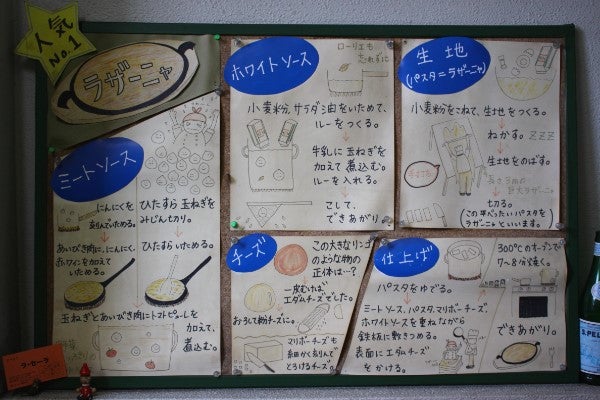 人気
No.1
ラザーニャ
ミートソース
にんにくを
刻んでいためる。
あいびき肉に、にんにく、
赤ワインを加えて
いためる。
ひたすら玉ねぎを
みじん切り。
ひたすらいためる。
玉ねぎとあいびき肉にトマトピューレを
加えて、
煮込む。
ホワイトソース
ローリエも
忘れずに
小麦粉、サラダ油をいためて、
ルーをつくる。
牛乳に玉ねぎを
加えて煮込む。
ルーを入れる。
こして、
できあがり
生地
(パスタ=ラザーニャ)
小麦粉をこねて、生地をつくる。
ねかす。ZZZ
生地をのばす。
手打ち
長さ3mの
巨大ラザーニャ
切る。
(この平べったいパスタを
ラザーニャといいます。)
チーズ
この大きなリンゴ
のような物の
正体は…?
一皮むけば
エダムチーズでした。
おろして粉チーズに。
マリボーチーズも
細かく刻んで
とろけるチーズ。
仕上げ
パスタをゆでる。
ミートソース、パスタ、マリボーチーズ、
ホワイトソースを重ねながら
鉄板に敷きつめる。
表面にエダムチーズ
をかける。
300℃のオーブンで
7〜8分焼く。
できあがり。
S.PEL